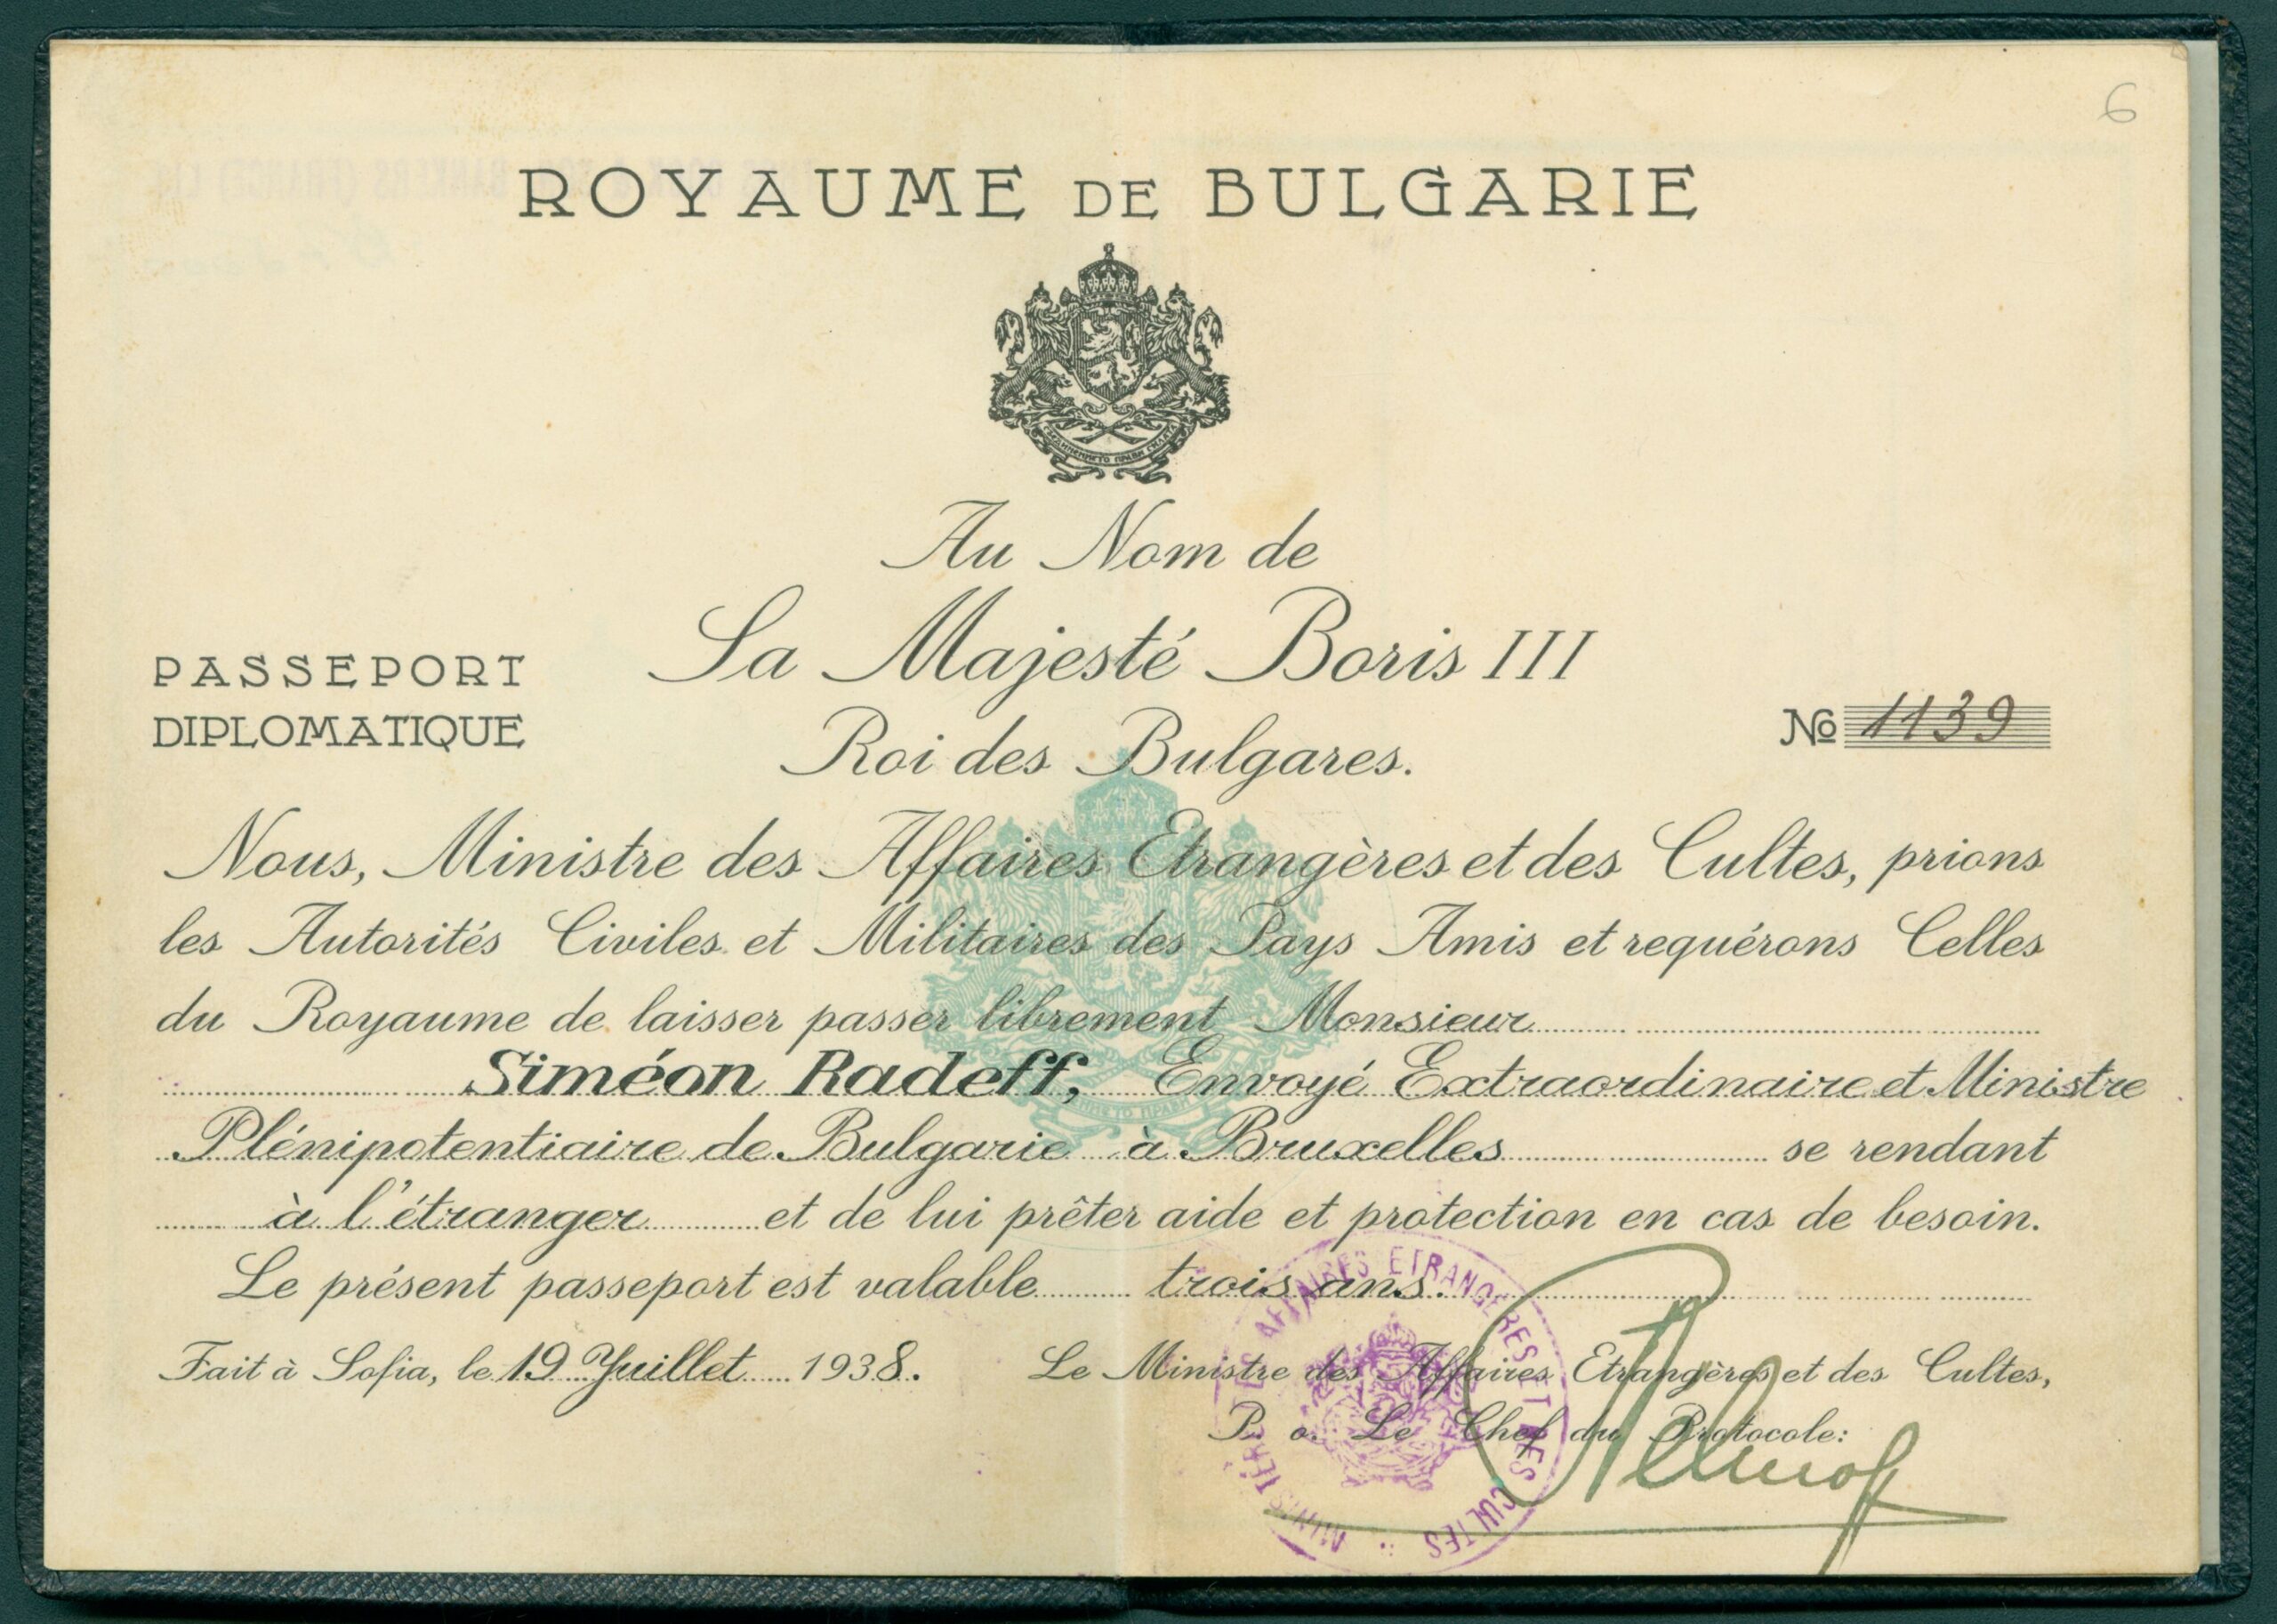 6
ROYAUME DE BULGARIE
СЪЕДИНЕНИЕТО ПРАВИ СИЛАТА
Au Nom de
Sa Majesté Boris III
Roi des Bulgares.
PASSEPORT
DIPLOMATIQUE
No 1139
Nous, Ministre des Affaires Etrangères et des Cultes, prions
les Autorités Civiles et Militaires des Pays Amis et requérons Celles
du Royaume de laisser passer librement Monsieur
Siméon Radeff, Envoyé Extraordinaire et Ministre
Plénipotentiaire de Bulgarie à Bruxelles se rendant
à l'étranger et de lui prêter aide et protection en cas de besoin.
Le présent passeport est valable trois ans.
Fait à Sofia, le 19 Juillet 1938.
Le Ministre des Affaires Etrangères et des Cultes,
P. o. Le Chef du Protocole:
MINISTÈRE DES AFFAIRES ETRANGÈRES ET DES CULTES